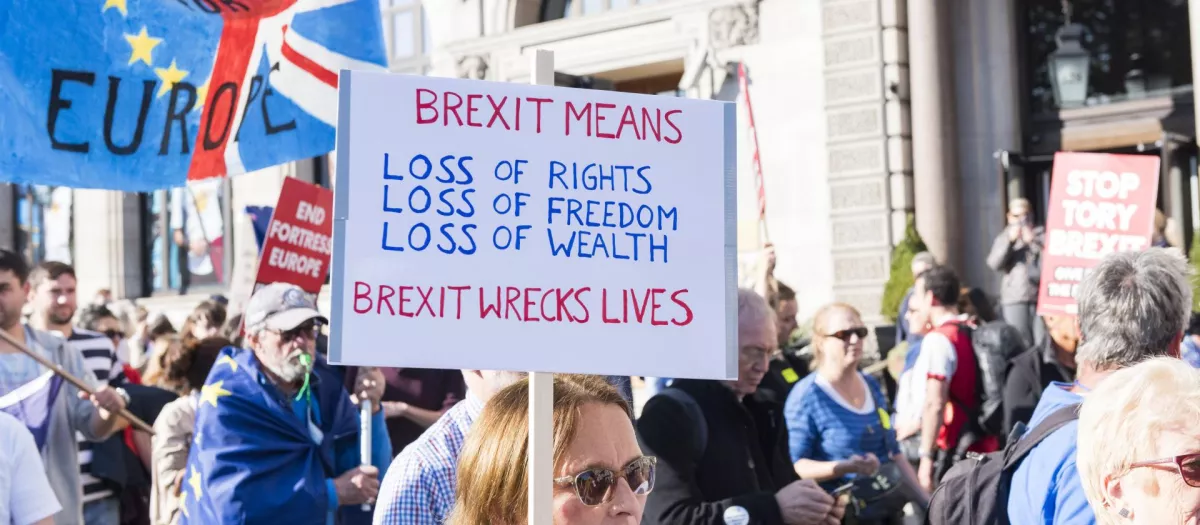 EUROPE
BREXIT MEANS
LOSS OF RIGHTS
LOSS OF FREEDOM
LOSS OF WEALTH
BREXIT WRECKS LIVES
END
FORTRESS
EUROPE
STOP
TORY
BREXIT